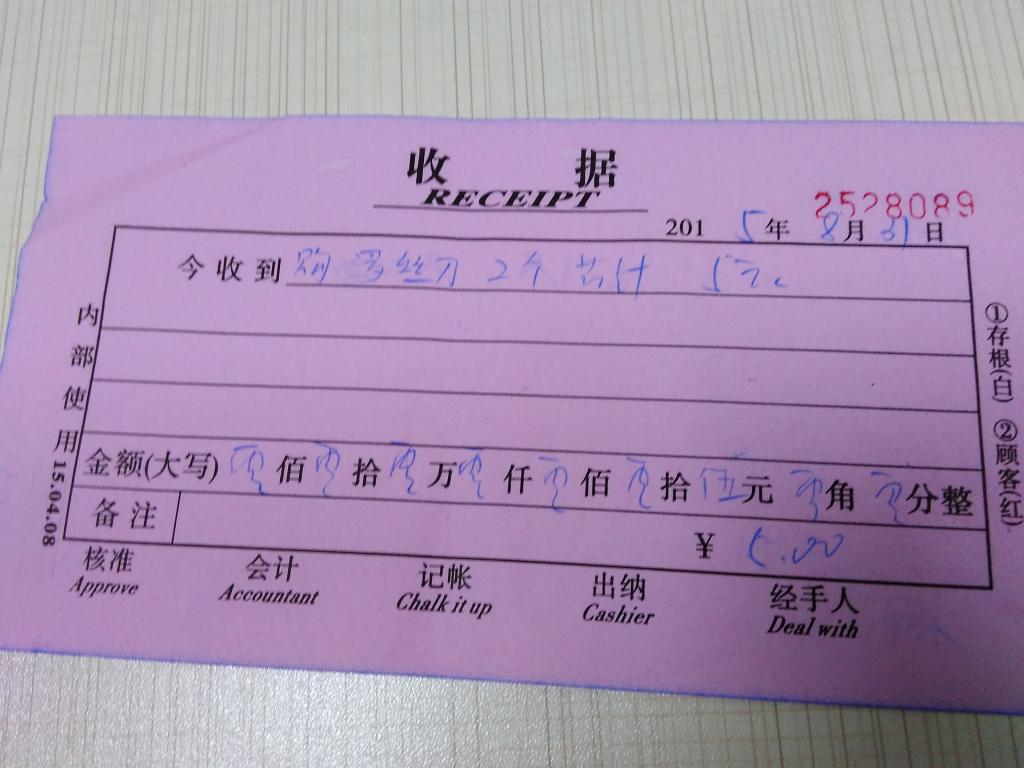 收 据
RECEIPT
2528089
2015年8月31日
今收到 购 螺丝刀 2个 共计 5元
金额(大写) 零佰零拾零万零仟零佰零拾伍元零角零分整
备注
¥ 5.00
核准 会计 记帐 出纳 经手人
Approve Accountant Chalk it up Cashier Deal with
内部使用
15.04.08
①存根(白) ②顾客(红)